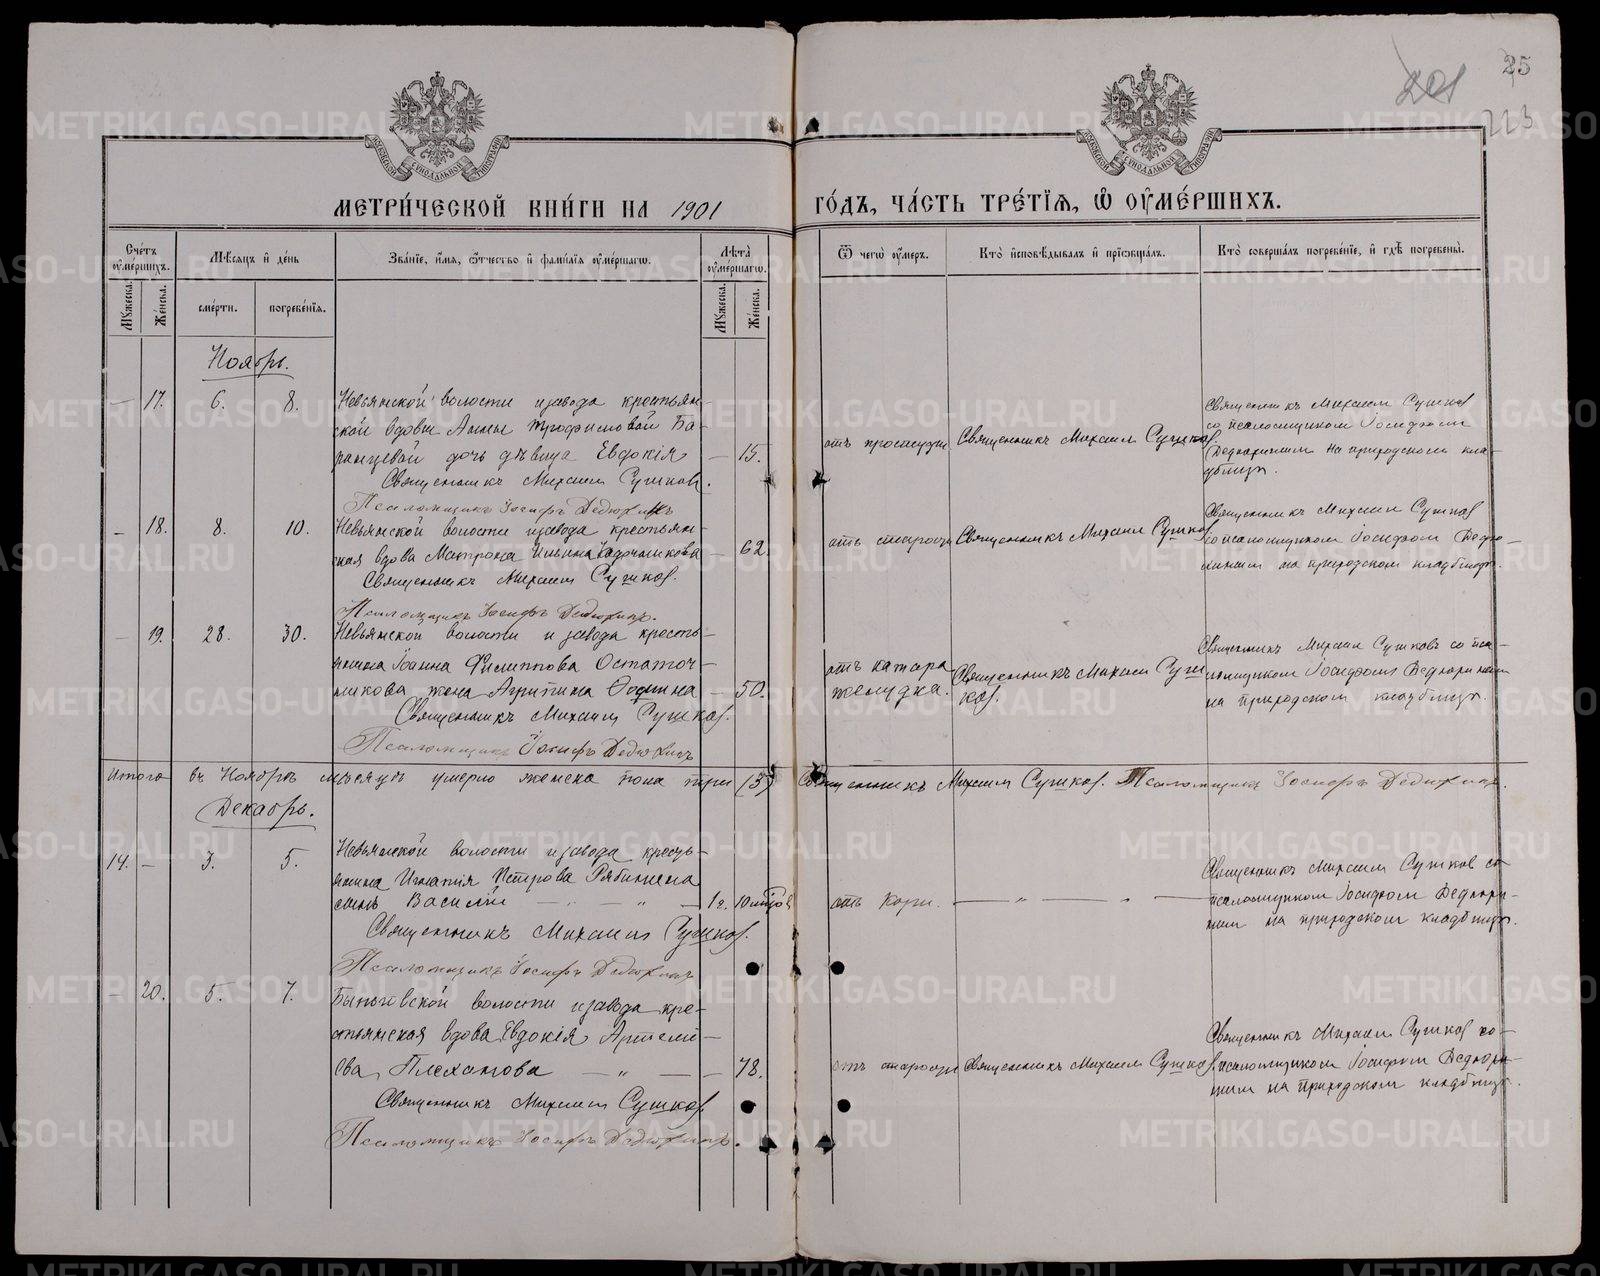 201
25
223
МЕТРИ́ЧЕСКОЙ КНИ́ГИ НА 1901 ГО́ДЪ, ЧА́СТЬ ТРЕ́ТЇѦ, Ѿ ОУ҆МЕ́РШИХЪ.
Сче́тъ оу҆ме́ршихъ.
Мꙋ́жеска.
Же́нска.
Мѣ́сѧцъ и҆ де́нь
сме́рти.
погребе́нїѧ.
Зва́нїе, и҆́мѧ, ѻ҆́тчество и҆ фами́лїѧ оу҆ме́ршагѡ.
Лѣ́та оу҆ме́ршагѡ.
Мꙋ́жеска.
Же́нска.
Ѿ чегѡ̀ оу҆́меръ.
Кто̀ и҆сповѣ́дывалъ и҆ прїѡбща́лъ.
Кто̀ соверша́лъ погребе́нїе, и҆ гдѣ̀ погребены̀.
Ноябрь.
— 17. 6. 8.
Невьянской волости и завода крестьян-
ской вдовы Анны Трофимовой Ба-
ранцевой дочь девица Евдокія — 15.
Священникъ Михаил Сушков.
Псаломщикъ Іосифъ Дедюхинъ
отъ простуды
Священникъ Михаил Сушков.
Священникъ Михаил Сушков
со псаломщиком Іосифом
Дедюхиным на приходском кла-
дбищѣ.
— 18. 8. 10.
Невьянской волости и завода крестьян-
ская вдова Матрона Ильина — 62.
Священникъ Михаил Сушков.
Псаломщикъ Іосифъ Дедюхинъ.
отъ старости
Священникъ Михаил Сушков
Священникъ Михаил Сушков
со псаломщиком Іосифом Дедю-
хиным на приходском кладбищѣ.
— 19. 28. 30.
Невьянской волости и завода кресть-
янина Іоанна Филиппова Остаточ-
никова жена Агрипина — 50.
Священникъ Михаил Сушков.
Псаломщикъ Іосифъ Дедюхинъ
отъ катара
желудка.
Священникъ Михаил Суш
ков.
Священникъ Михаил Сушковъ со пса-
ломщиком Іосифом Дедюхиным
на приходском кладбищѣ.
Итого въ Ноябрѣ мѣсяцѣ умерло женска пола три (3) Священникъ Михаил Сушков. Псаломщикъ Іосифъ Дедюхинъ.
Декабрь.
14. — 3. 5.
Невьянской волости и завода кресть-
янина Игнатія Петрова Рябинина
сынъ Василій — „ — „ — 1 г. 10 мѣс
Священникъ Михаилъ Сушков.
Псаломщикъ Іосифъ Дедюхинъ
отъ кори. — „ — „ —
Священникъ Михаил Сушков со
псаломщиком Іосифом Дедюхи-
ным на приходском кладбищѣ.
— 20. 5. 7.
Быньговской волости и завода кре-
стьянская вдова Евдокія Артемі-
ева Плеханова — „ — 78.
Священникъ Михаил Сушков
Псаломщикъ Іосифъ Дедюхинъ.
отъ старости
Священникъ Михаил Сушков.
Священникъ Михаил Сушков со
псаломщиком Іосифом Дедюхи-
ным на приходском кладбищѣ.
METRIKI.GASO-URAL.RU